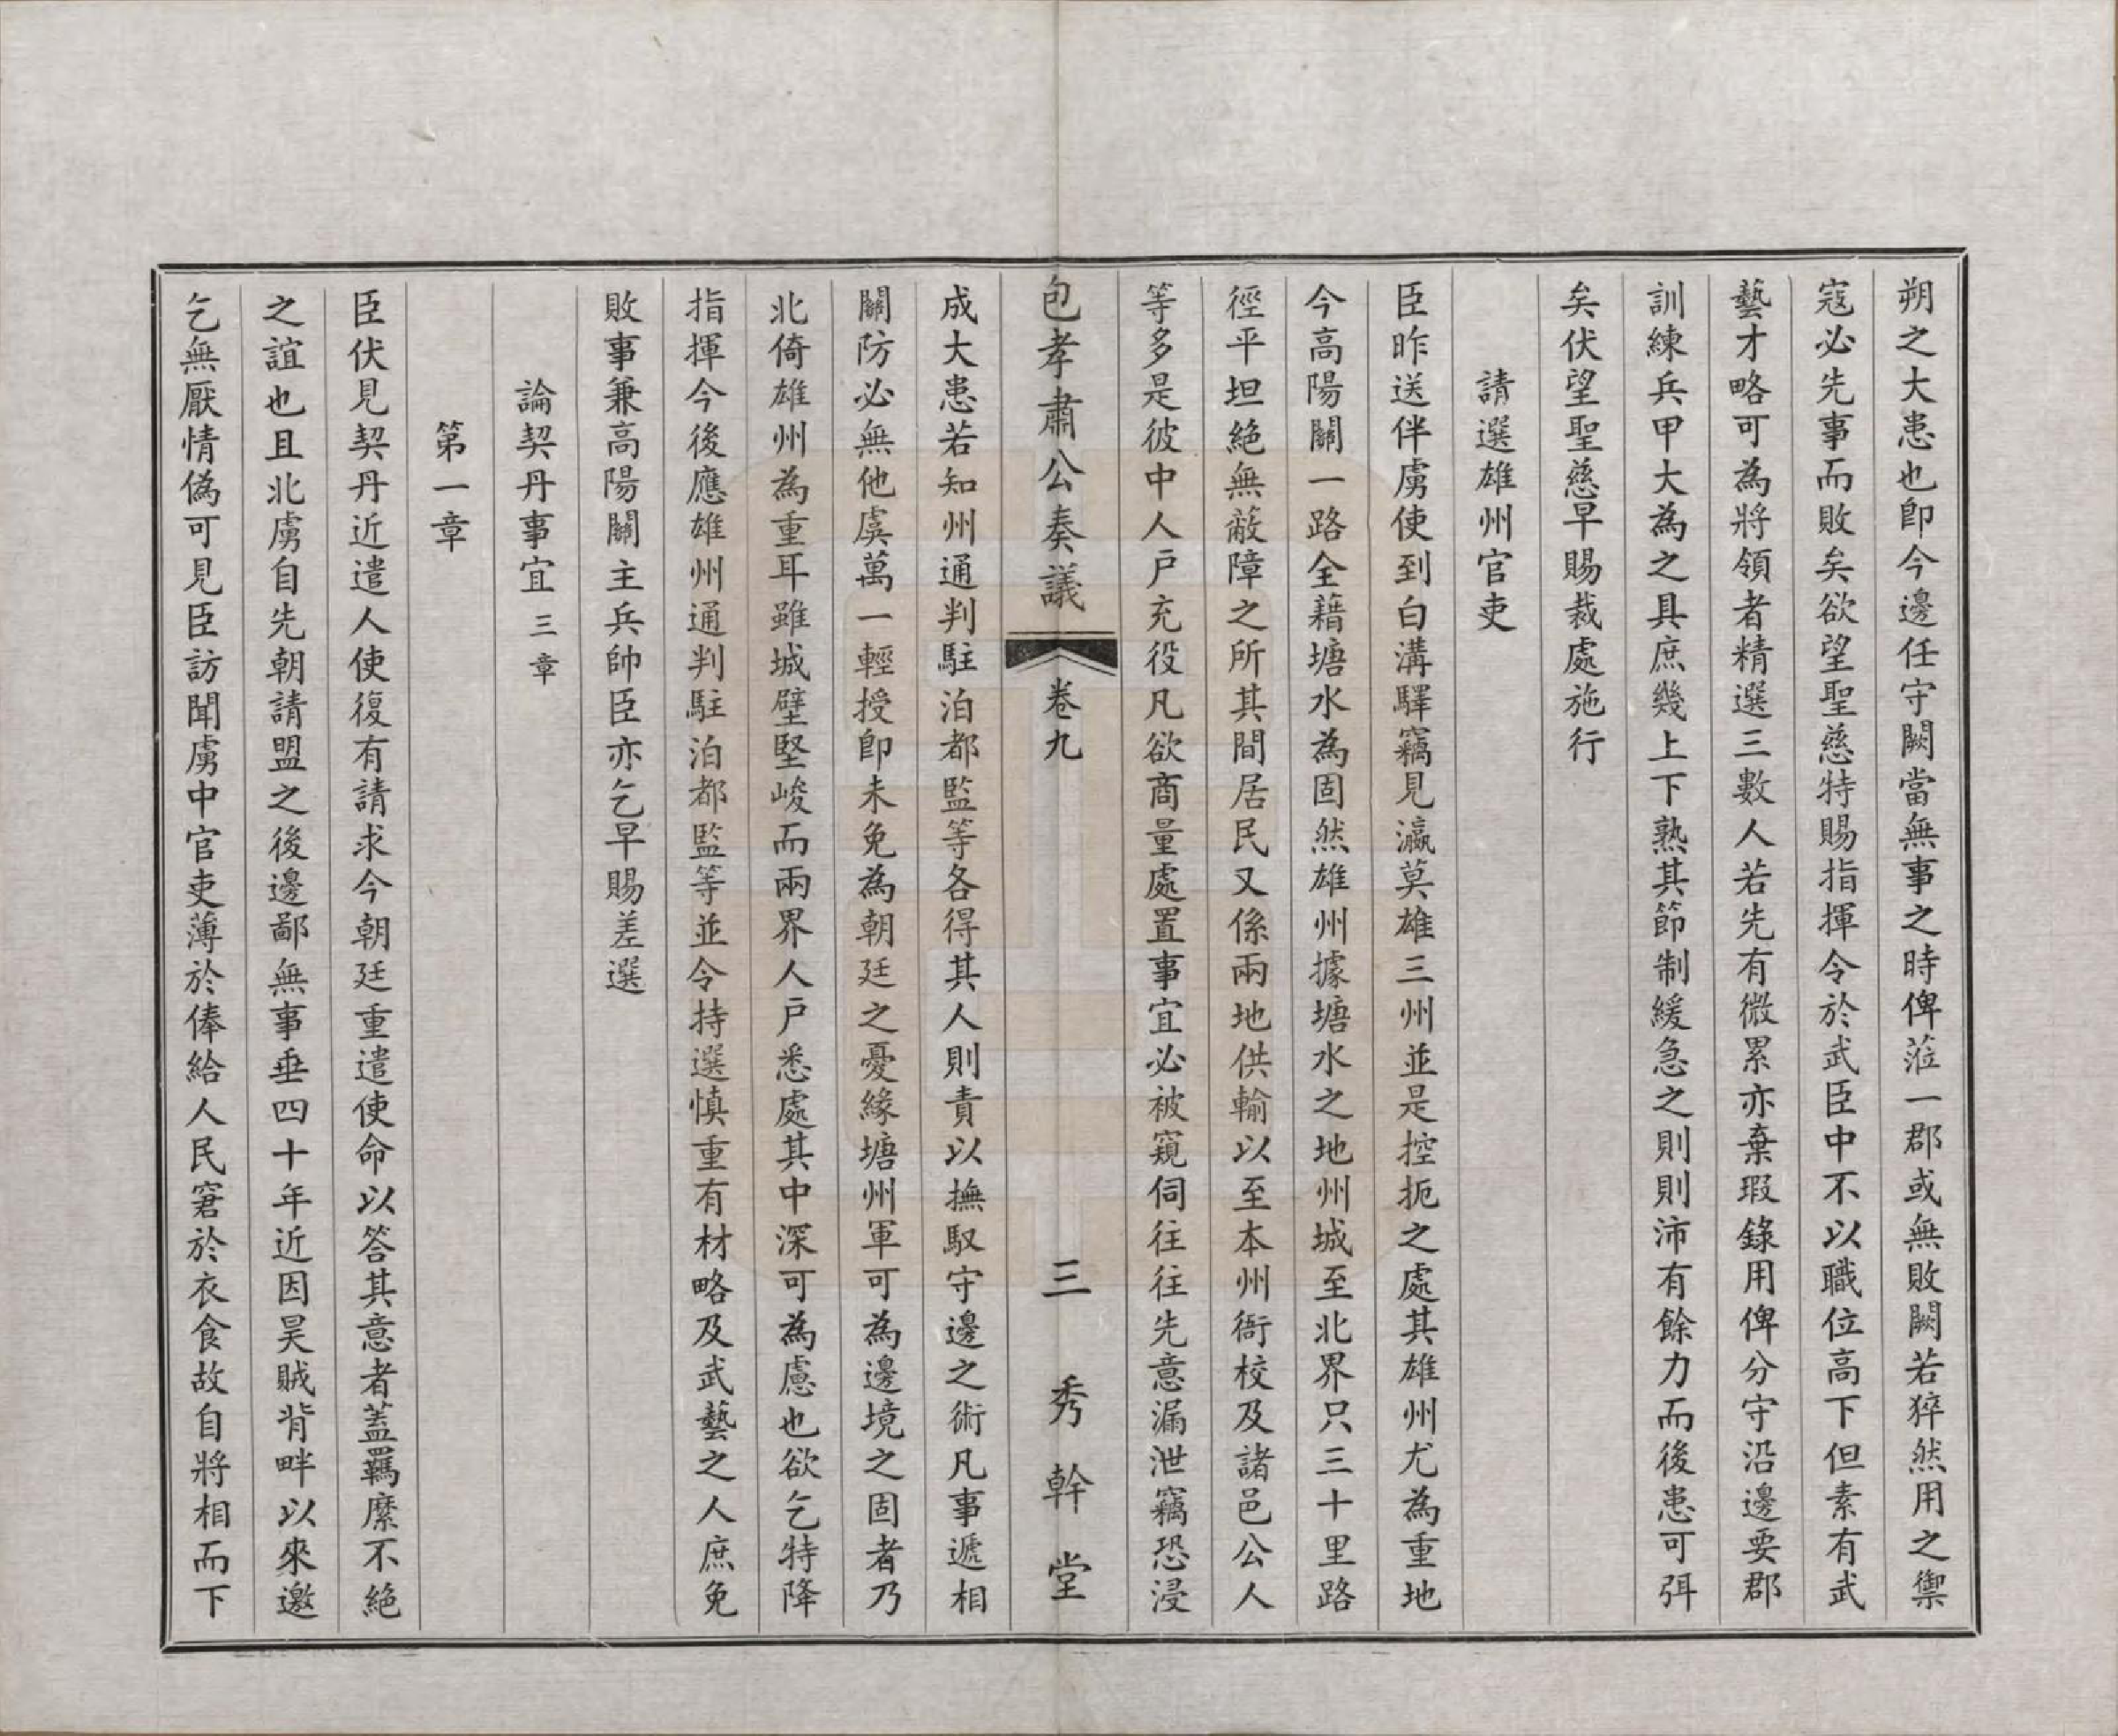 朔之大患也卽今邊任守闕當無事之時俾蒞一郡或無敗闕若猝然用之禦
寇必先事而敗矣欲望聖慈特賜指揮令於武臣中不以職位高下但素有武
藝才略可為將領者精選三數人若先有微累亦棄瑕錄用俾分守沿邊要郡
訓練兵甲大為之具庶幾上下熟其節制緩急之則則沛有餘力而後患可弭
矣伏望聖慈早賜裁處施行
請選雄州官吏
臣昨送伴虜使到白溝驛竊見瀛莫雄三州並是控扼之處其雄州尤為重地
今高陽關一路全藉塘水為固然雄州據塘水之地州城至北界只三十里路
徑平坦絕無蔽障之所其間居民又係兩地供輸以至本州衙校及諸邑公人
等多是彼中人戶充役凡欲商量處置事宜必被窺伺往往先意漏泄竊恐浸
包孝肅公奏議 卷九 三 秀幹堂
成大患若知州通判駐泊都監等各得其人則責以撫馭守邊之術凡事遞相
關防必無他虞萬一輕授卽未免為朝廷之憂緣塘州軍可為邊境之固者乃
北倚雄州為重耳雖城壁堅峻而兩界人戶悉處其中深可為慮也欲乞特降
指揮今後應雄州通判駐泊都監等並令持選慎重有材略及武藝之人庶免
敗事兼高陽關主兵帥臣亦乞早賜差選
論契丹事宜三章
第一章
臣伏見契丹近遣人使復有請求今朝廷重遣使命以答其意者蓋羈縻不絕
之誼也且北虜自先朝請盟之後邊鄙無事垂四十年近因昊賊背畔以來邀
乞無厭情偽可見臣訪聞虜中官吏薄於俸給人民窘於衣食故自將相而下